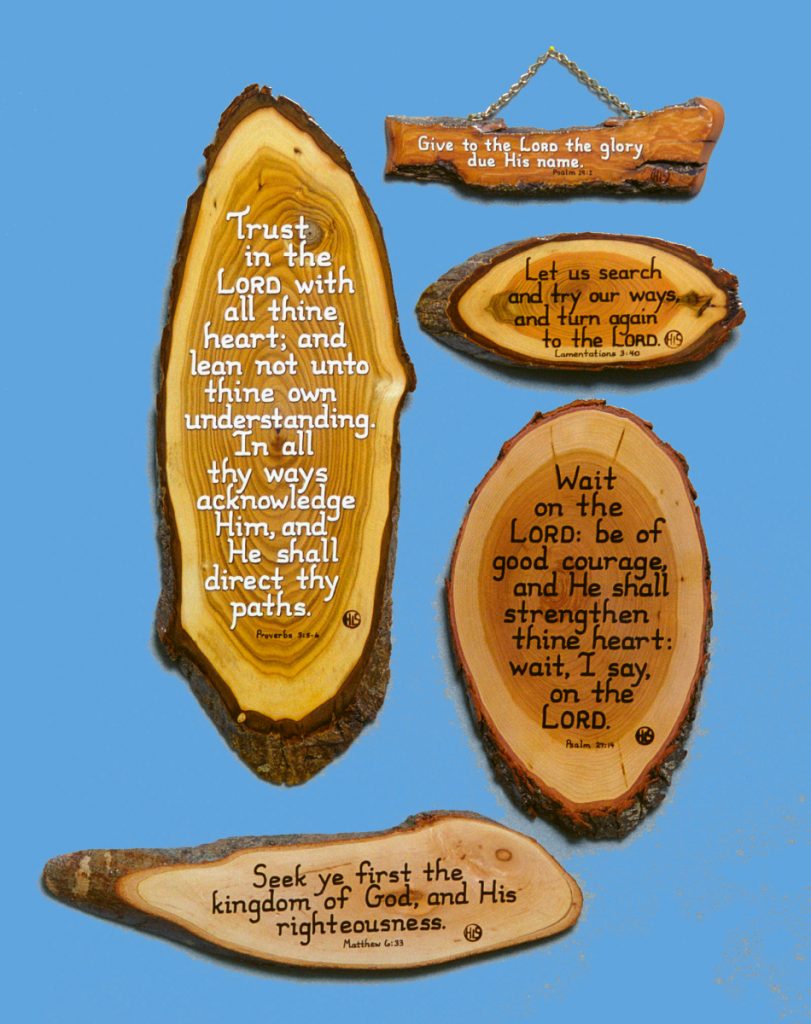 Give to the LORD the glory
due His name.
Psalm 29:2
HIS
Trust
in the
LORD with
all thine
heart; and
lean not unto
thine own
understanding.
In all
thy ways
acknowledge
Him, and
He shall
direct thy
paths.
HIS
Proverbs 3:5-6
Let us search
and try our ways,
and turn again
to the LORD.
HIS
Lamentations 3:40
Wait
on the
LORD: be of
good courage,
and He shall
strengthen
thine heart:
wait, I say,
on the
LORD.
HIS
Psalm 27:14
Seek ye first the
kingdom of God, and His
righteousness.
HIS
Matthew 6:33